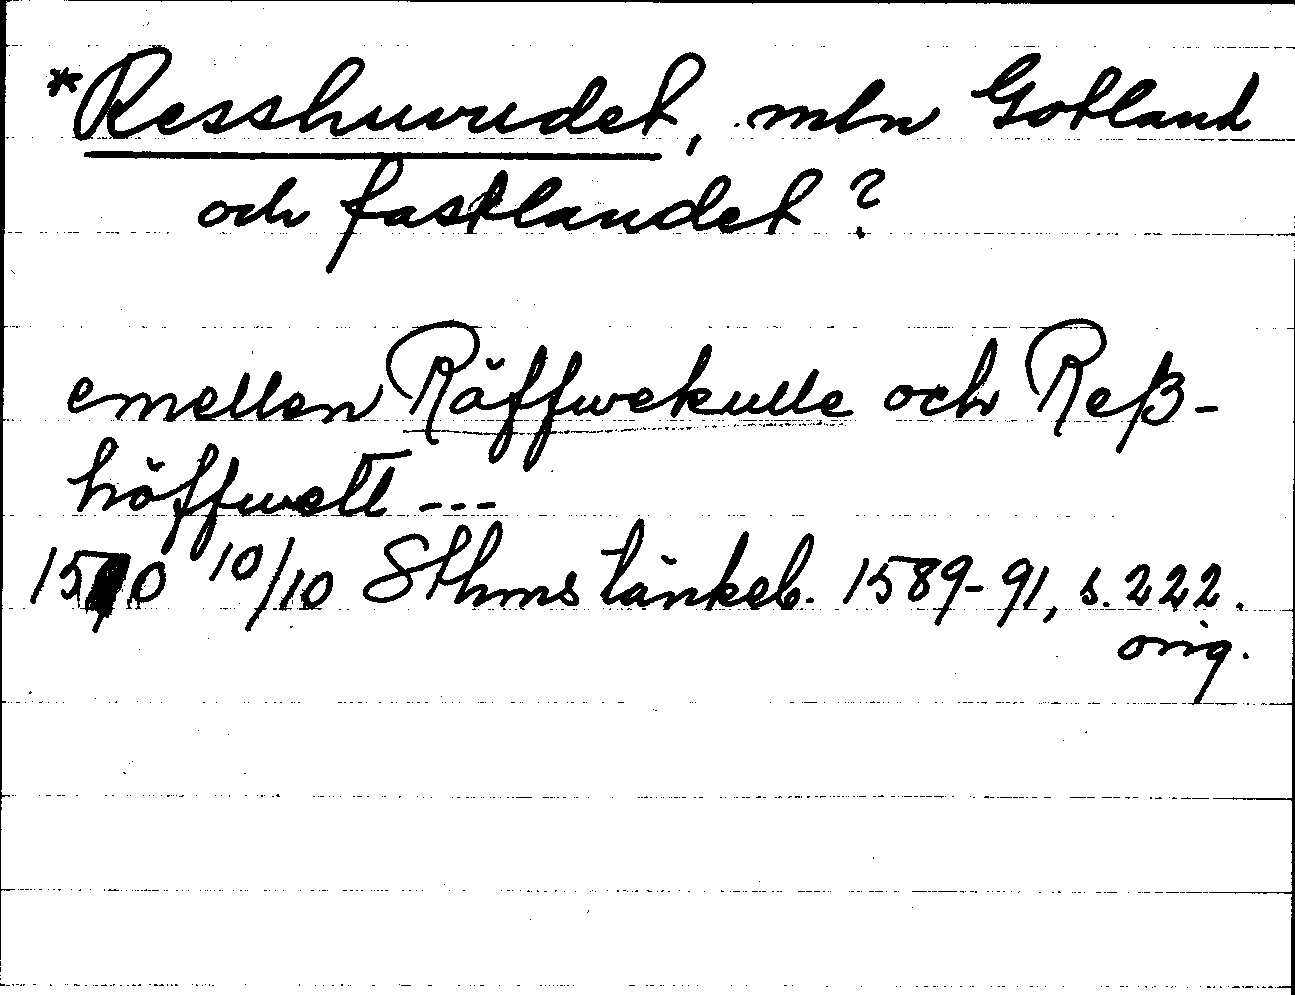 *Resshuvudet, mln Gotland
och fastlandet?
emellan Räffwekulle och Reß-
höffwett ---
1590 10/10 Sthms tänkeb. 1589-91, s. 222.
orig.